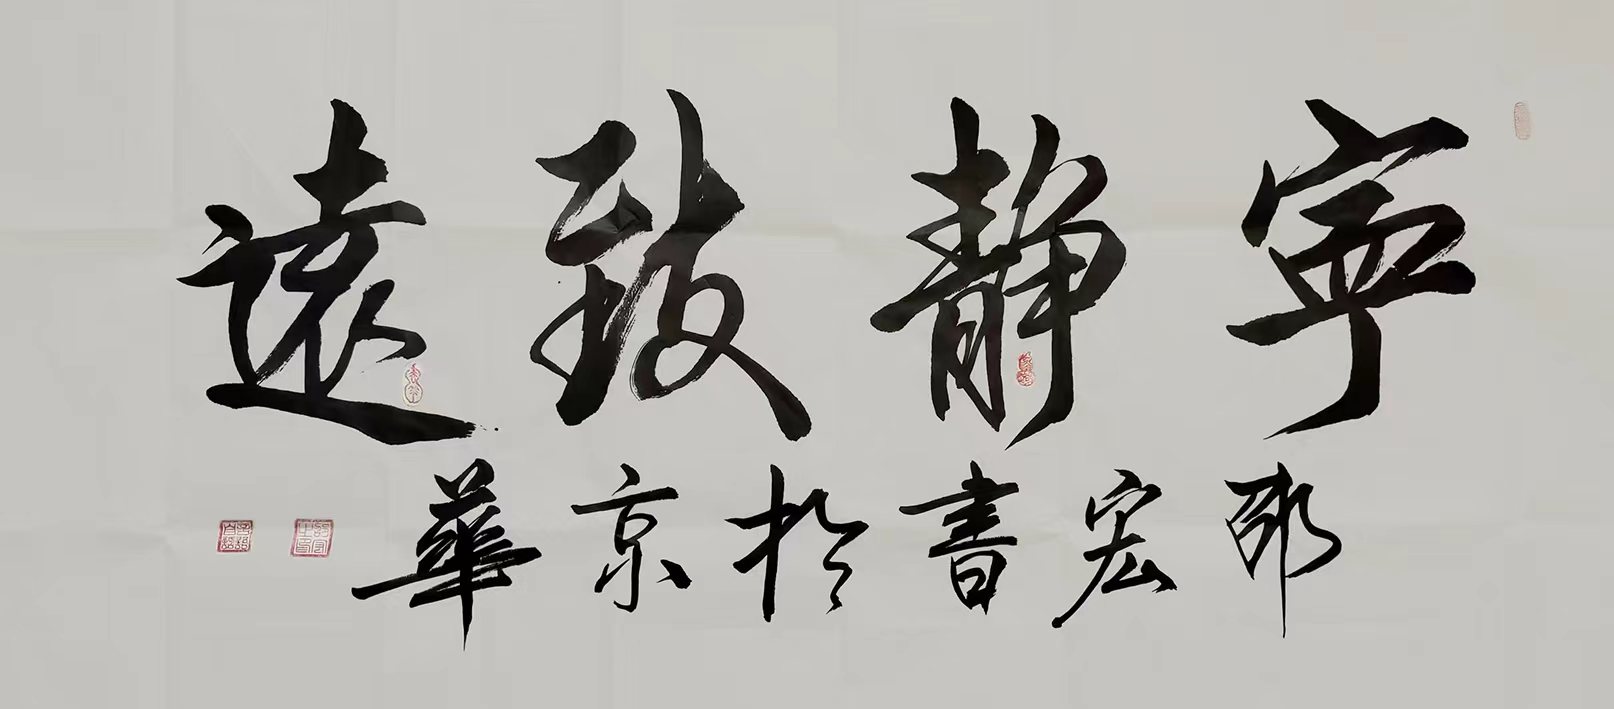 寧靜致遠
邵宏書於京華